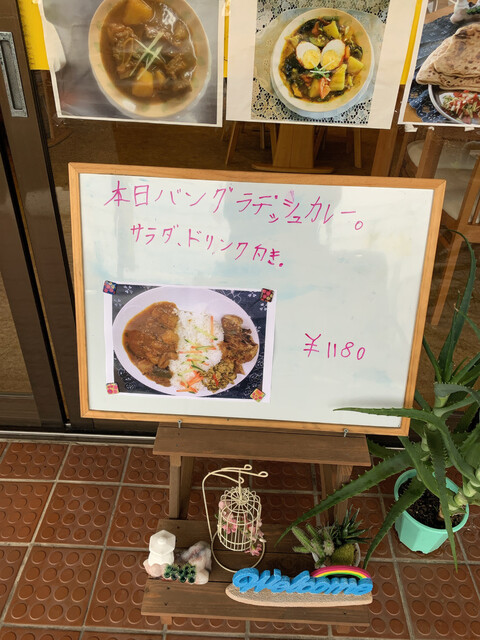 本日バングラデッシュカレー。
サラダ、ドリンク付き。
¥1180
Welcome